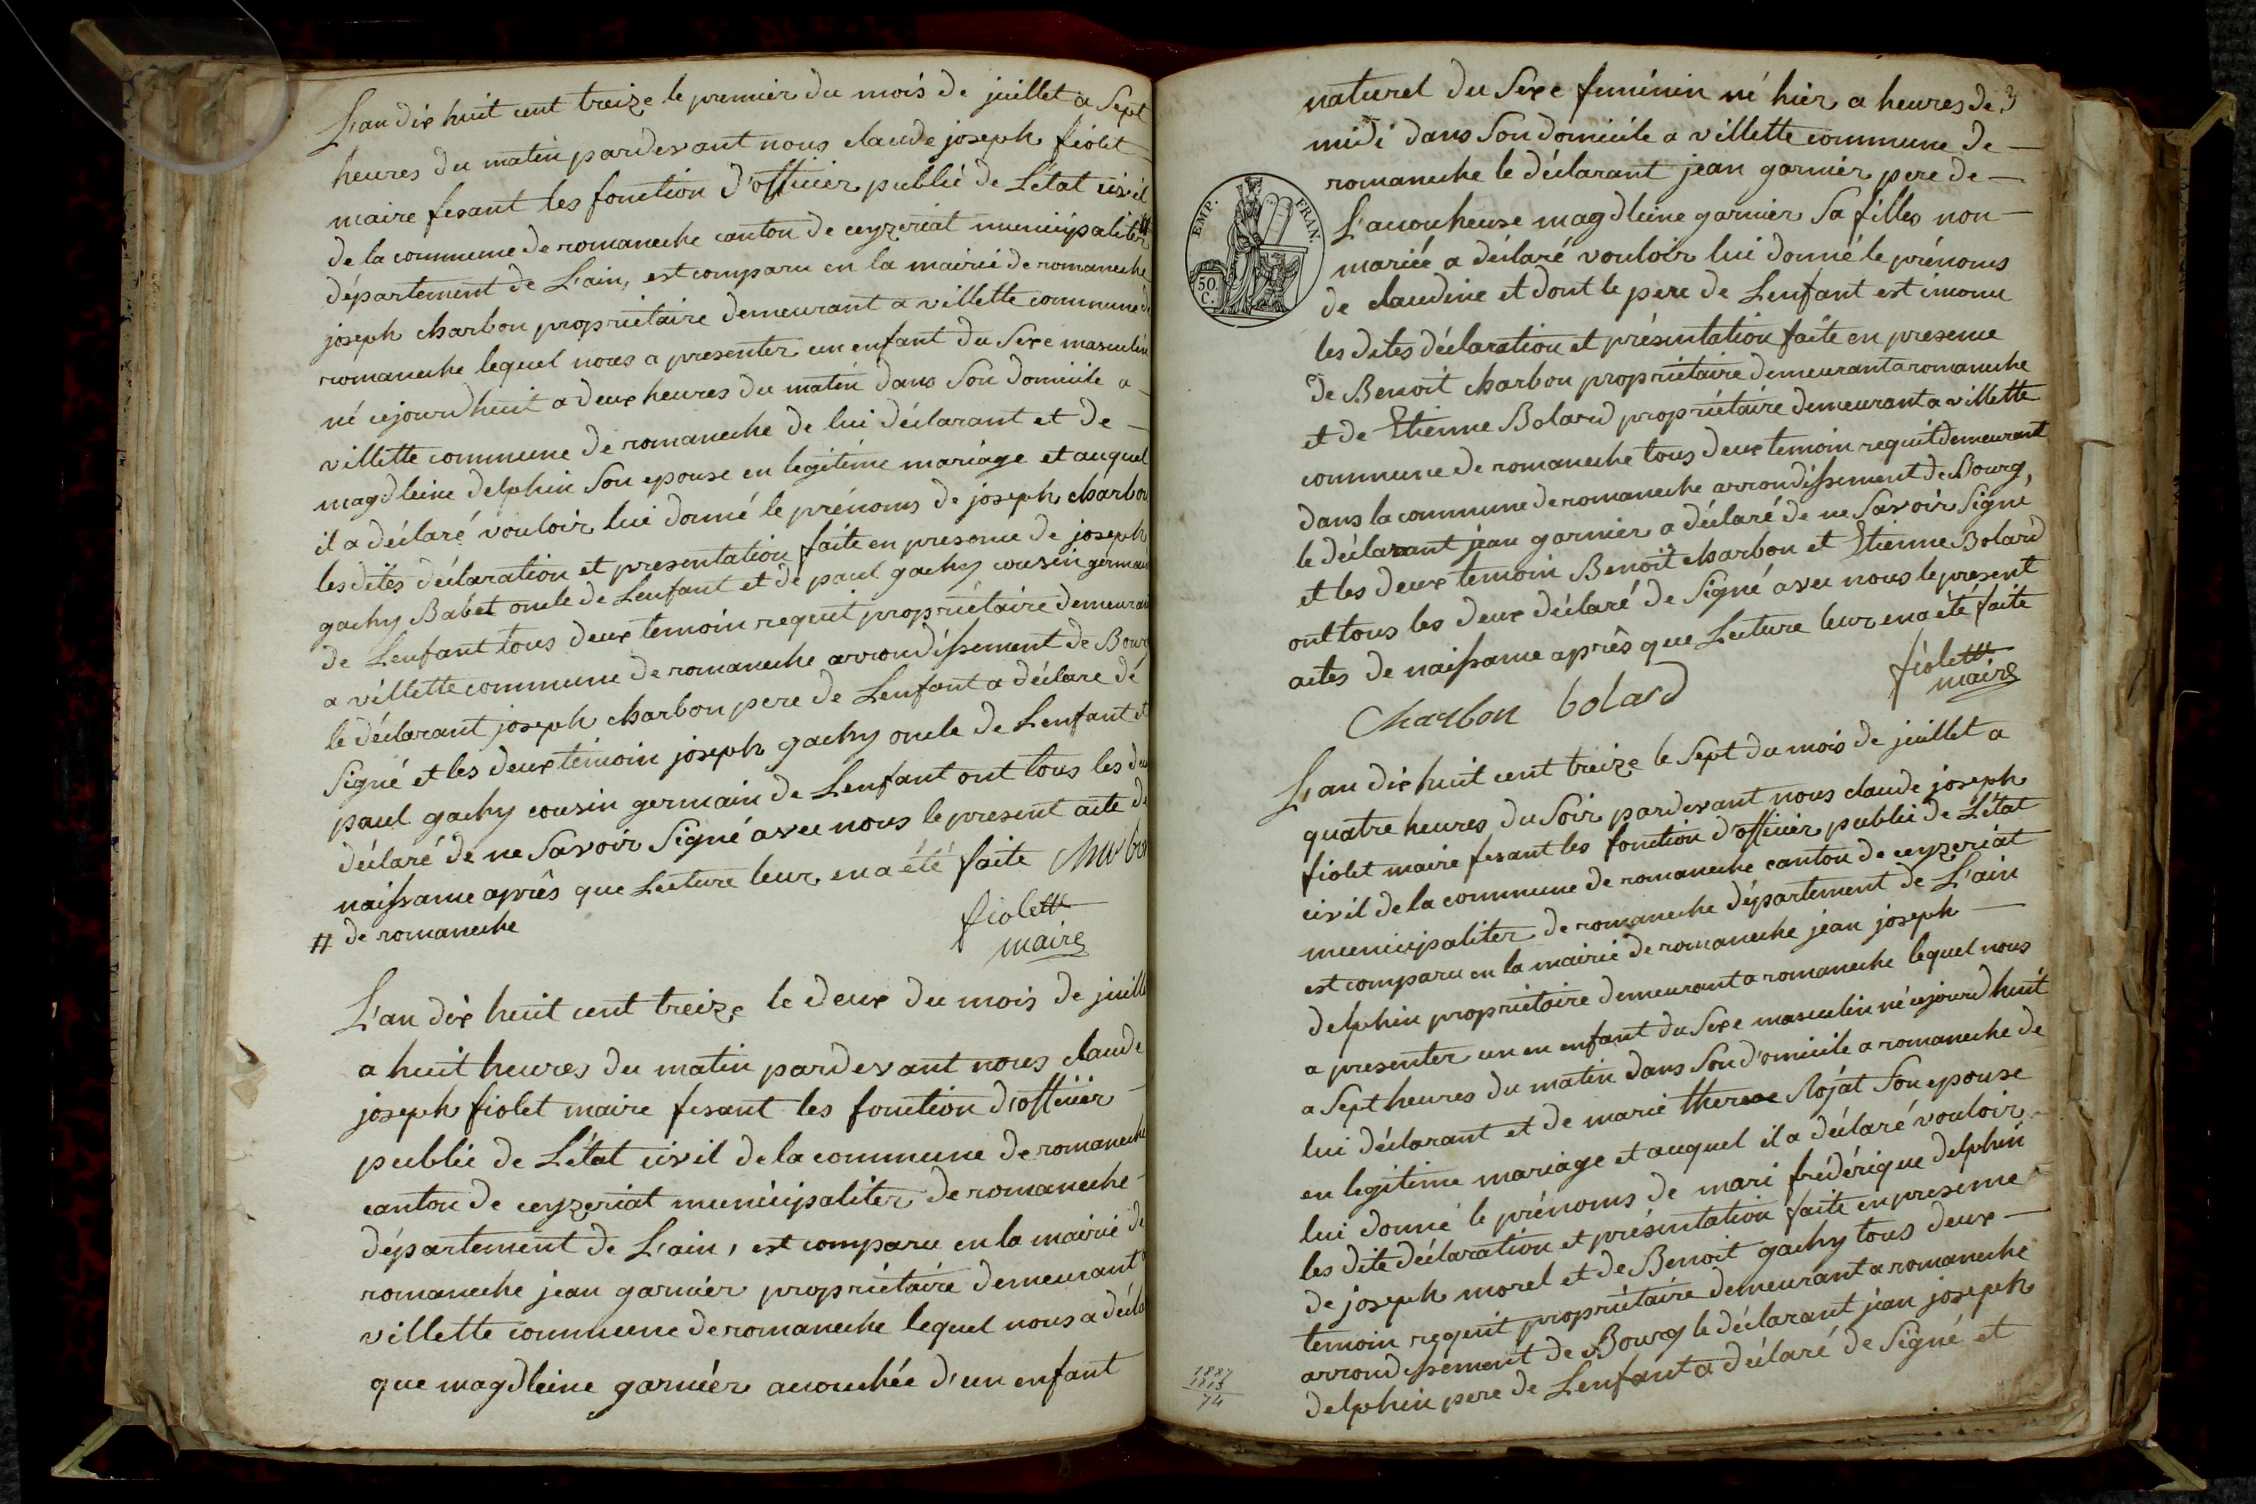 L'an dix huit cent treize le premier du mois de juillet a Sept
heures du matin pardevant nous claude joseph fiolet
maire fesant les fonction d'officier public de L'état civil
de la commune de romaneche canton de ceyzeriat municipaliter #
département de L'ain, est comparu en la mairie de romaneche
joseph charbon propriétaire demeurant a villette commune de
romaneche lequel nous a presenter un enfant du Sexe masculin
né cejourdhuit a deux heures du matin dans Son domicile a
villette commune de romaneche de lui déclarant et de
magdleine delphin Son epouse en legitime mariage et auquel
il a déclaré vouloir lui donné le prénoms de joseph charbon
les dites déclaration et presentation faite en presence de joseph
gachy Babet oncle de Lenfant et de paul gachy cousin germain
de Lenfant tous deux temoin requit propriétaire demeurant
a villette commune de romaneche arrondissement de Bourg
le déclarant joseph charbon pere de Lenfant a déclaré de
Signé et les deux témoin joseph gachy oncle de Lenfant et
paul gachy cousin germain de Lenfant ont tous les deux
déclaré de ne Savoir Signé avec nous le present acte de
naissance après que Lecture leur en a été faite
# de romaneche
fiolett
maire
L'an dix huit cent treize le deux du mois de juillet
a huit heures du matin pardevant nous claude
joseph fiolet maire fesant les fonction d'officier
public de L'état civil de la commune de romaneche
canton de ceyzeriat municipaliter de romaneche
département de L'ain, est comparu en la mairie de
romaneche jean garnier propriétaire demeurant a
villette commune de romaneche lequel nous a déclaré
que magdleine garnier acouchée d'un enfant
naturel du Sexe feminin né hier a heures de 3
midi dans Son domicile a villette commune de
romaneche le déclarant jean garnier pere de
L'acoucheuse magdleine garnier Sa filles non
mariée a déclaré vouloir lui donné le prénoms
de claudine et dont le pere de Lenfant est inconu
les dites déclaration et présentation faite en presence
de Benoit charbon propriétaire demeurant a romaneche
et de Etienne Bolard propriétaire demeurant a villette
commune de romaneche tous deux temoin requit demeurant
dans la commune de romaneche arrondissement de Bourg,
le déclarant jean garnier a déclaré de ne Savoir Signe
et les deux temoin Benoit charbon et Etienne Bolard
ont tous les deux déclaré de Signé avec nous le present
actes de naissance après que Lecture leur en a été faite
Charbon bolard
fiolett
maire
EMP. FRAN.
50.
C.
L'an dix huit cent treize le Sept du mois de juillet a
quatre heures du Soir pardevant nous claude joseph
fiolet maire fesant les fonction d'officier public de L'état
civil de la commune de romaneche canton de ceyzeriat
municipaliter de romaneche département de L'ain
est comparu en la mairie de romaneche jean joseph
delphin proprietaire demeurant a romaneche lequel nous
a presenter un en enfant du Sexe masculin né cejourdhuit
a Sept heures du matin dans Son domicile a romaneche de
lui déclarant et de marie therese Rojat Son epouse
en legitime mariage et auquel il a déclaré vouloir
lui donné le prénoms de mari frédérique delphin
les dite déclaration et présentation faite en presence
de joseph morel et de Benoit gachy tous deux
temoin requit propriétaire demeurant a romaneche
arrondissement de Bourg le déclarant jean joseph
delphin pere de Lenfant a déclaré de Signé et
1887
1813
74